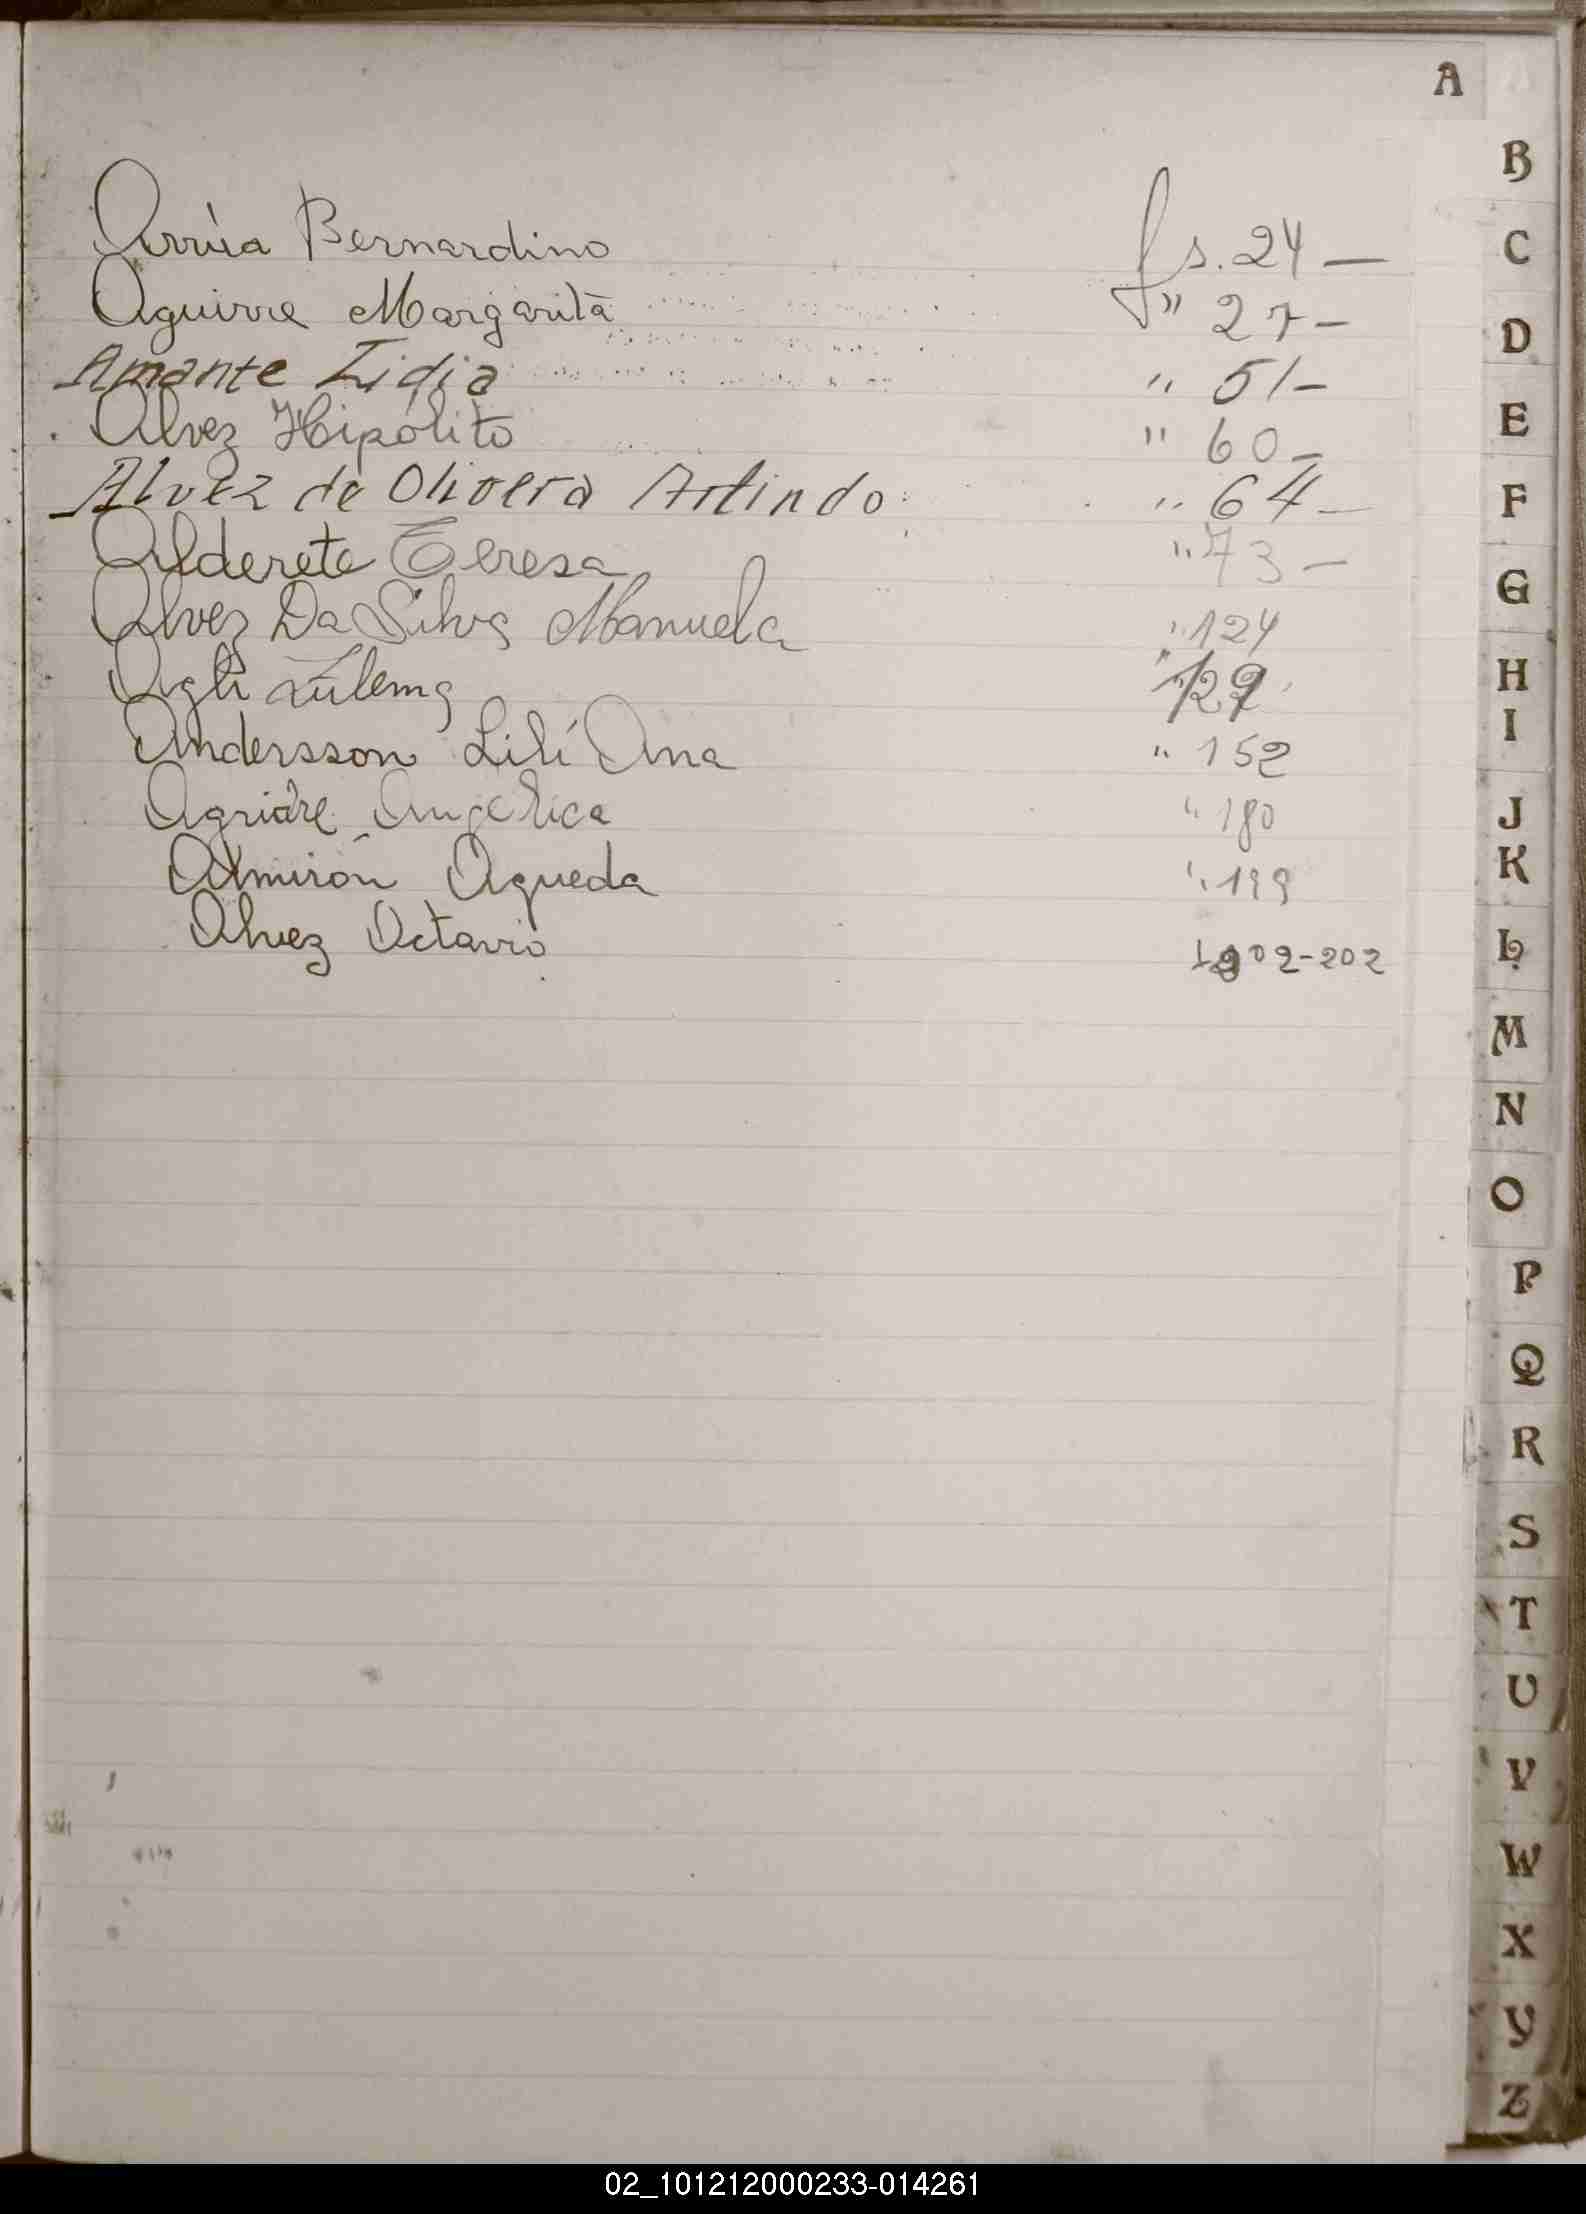 A
Arrúa Bernardino fs. 24 —
Aguirre Margarita " 27 -
Amante Lidia " 51 -
Alvez Hipólito " 60 -
Alvez de Olivera Arlindo " 64 -
Alderete Teresa " 73 -
Alvez Da Silva Manuela " 124
Agli Zulema "
Andersson Lilí Ana " 152
Angelica " 180
Almirón Agueda " 199
Alvez Octavio 202
B
C
D
E
F
G
H
I
J
K
L
M
N
O
P
Q
R
S
T
U
V
W
X
Y
Z
02_101212000233-014261